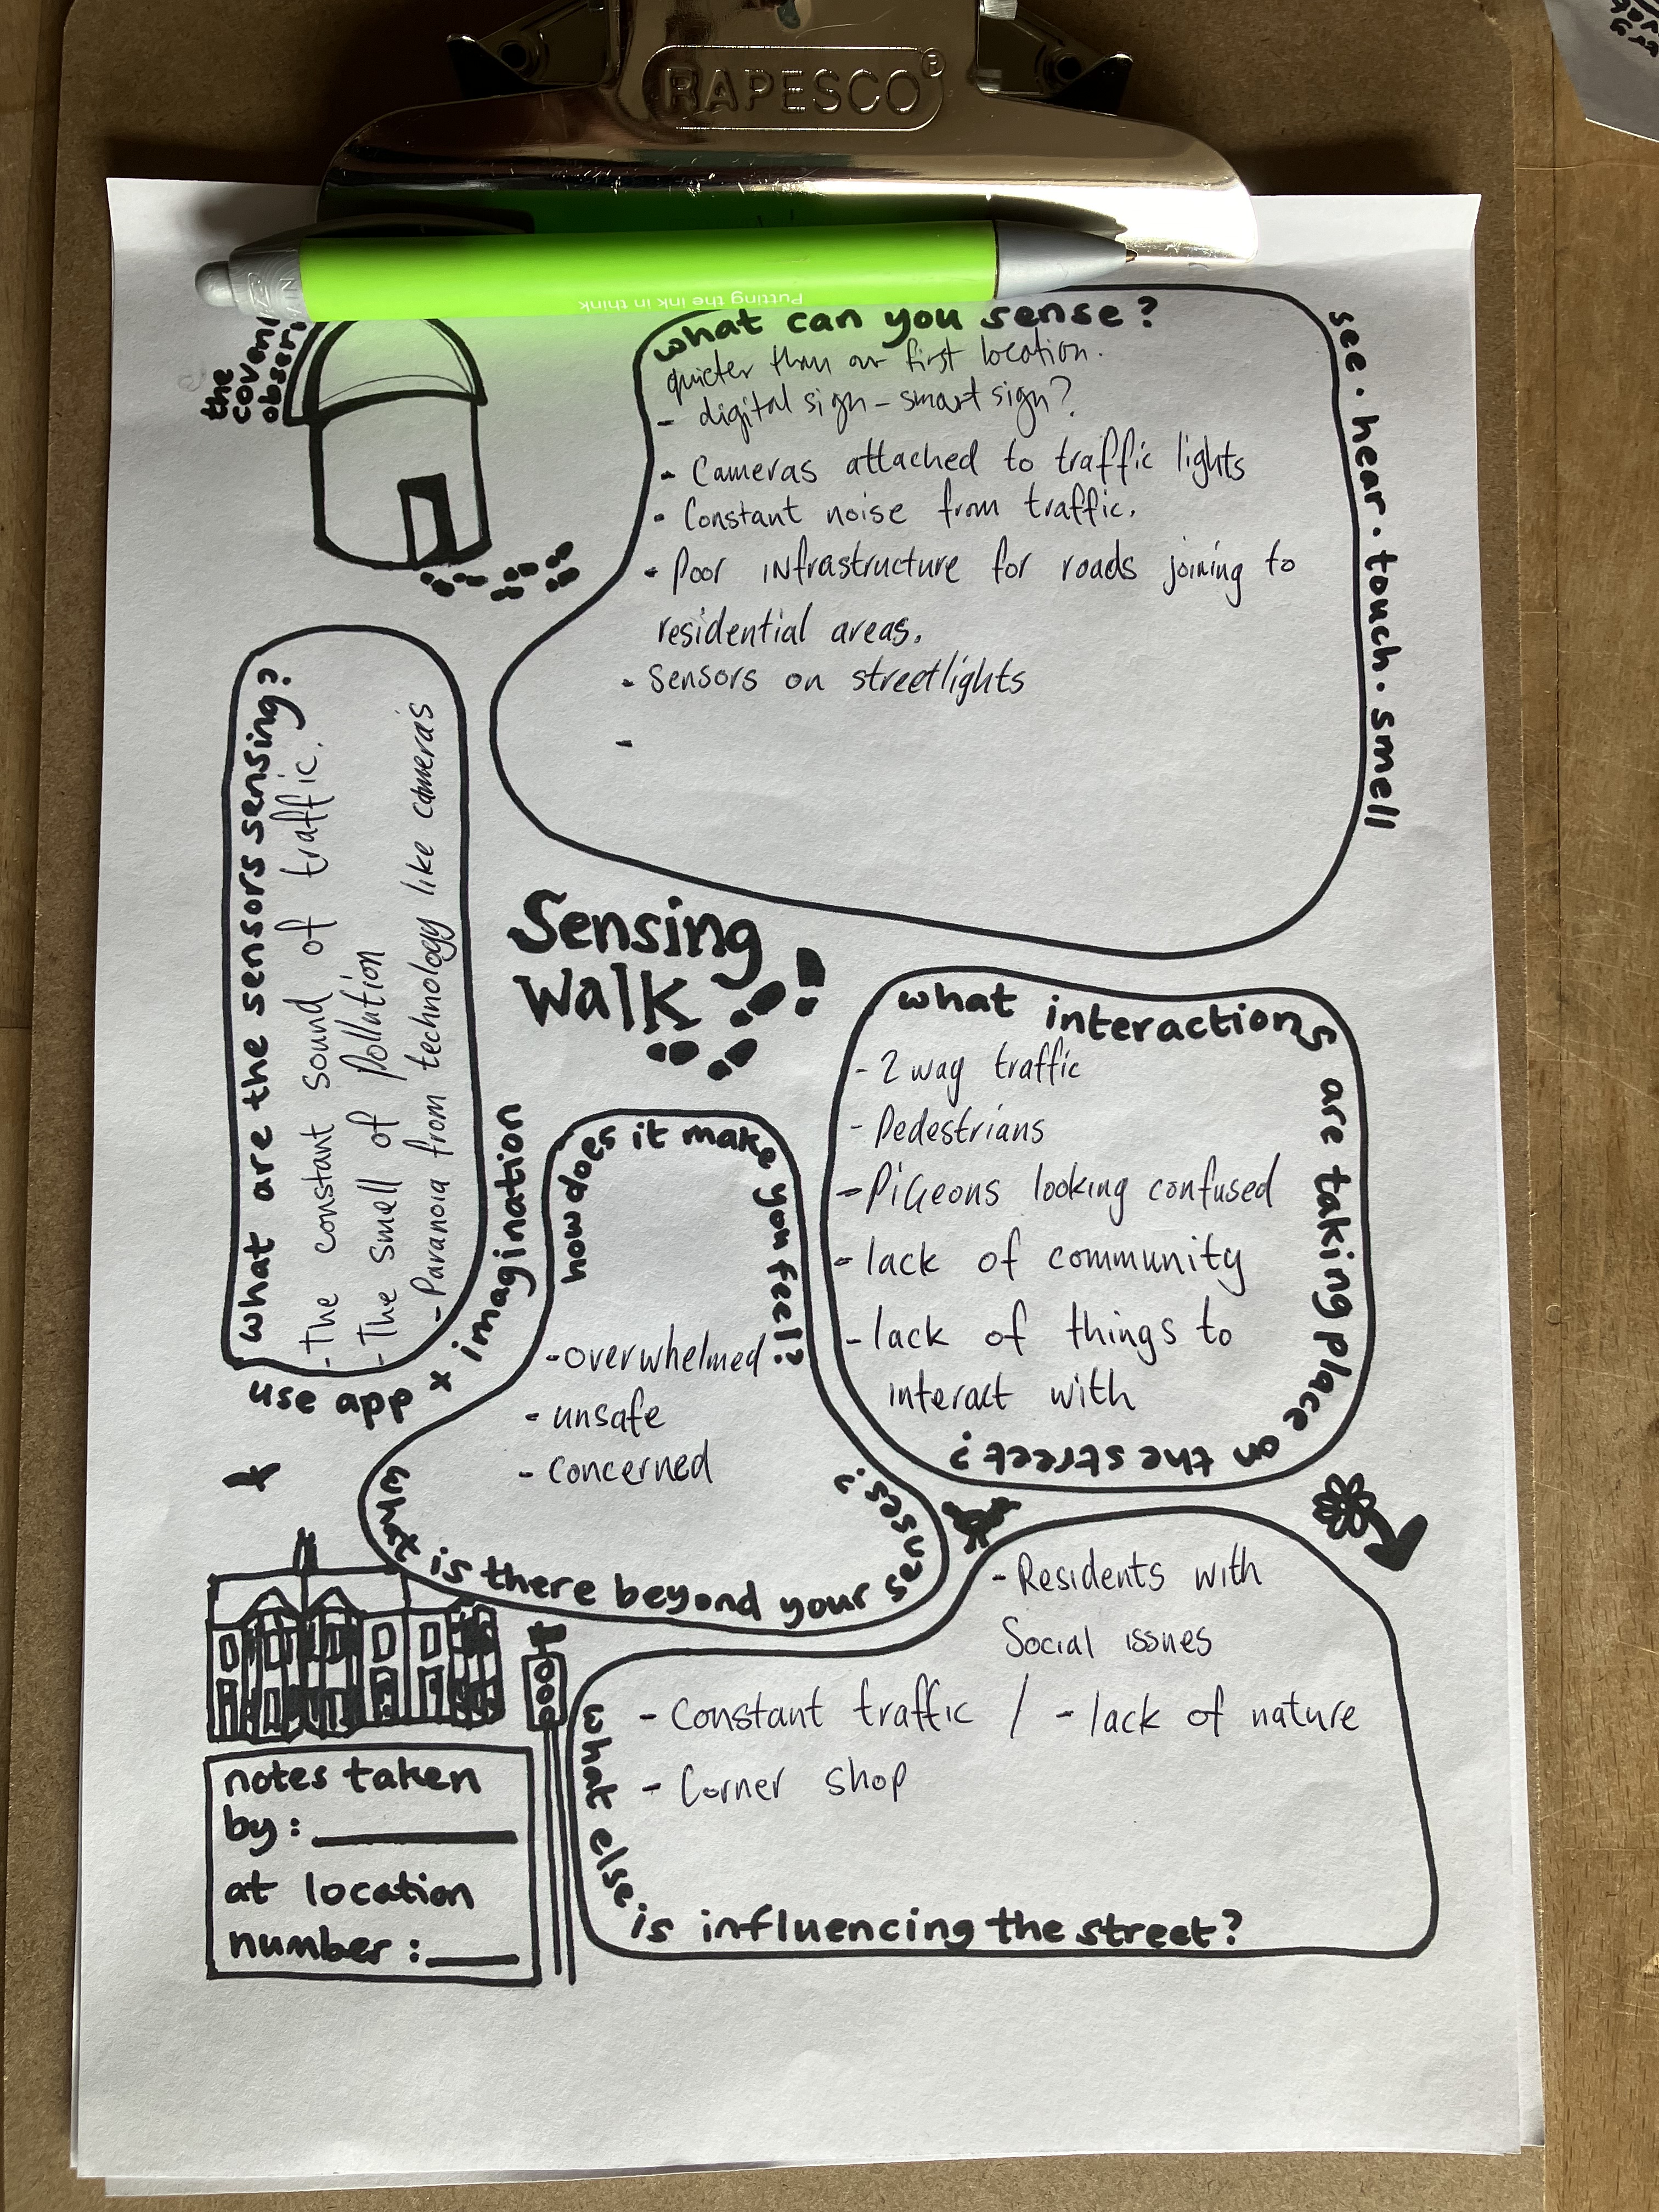 RAPESCO®
Putting the ink in think
the
coven
observ
what can you sense?
see . hear . touch . smell
quieter than our first location.
- digital sign - smart sign?
- Cameras attached to traffic lights
- Constant noise from traffic.
- Poor infrastructure for roads joining to
residential areas.
- Sensors on streetlights
-
what are the sensors sensing?
- The constant sound of traffic.
- The smell of Pollution
- Paranoia from technology like cameras
use app x imagination
Sensing
Walk
what interactions are taking place on the street?
- 2 way traffic
- Pedestrians
- Pigeons looking confused
- lack of community
- lack of things to
interact with
how does it make you feel?
- overwhelmed
- unsafe
- concerned
what is there beyond your senses?
- Residents with
Social issues
- Constant traffic / - lack of nature
- Corner shop
what else is influencing the street?
notes taken
by:
at location
number: